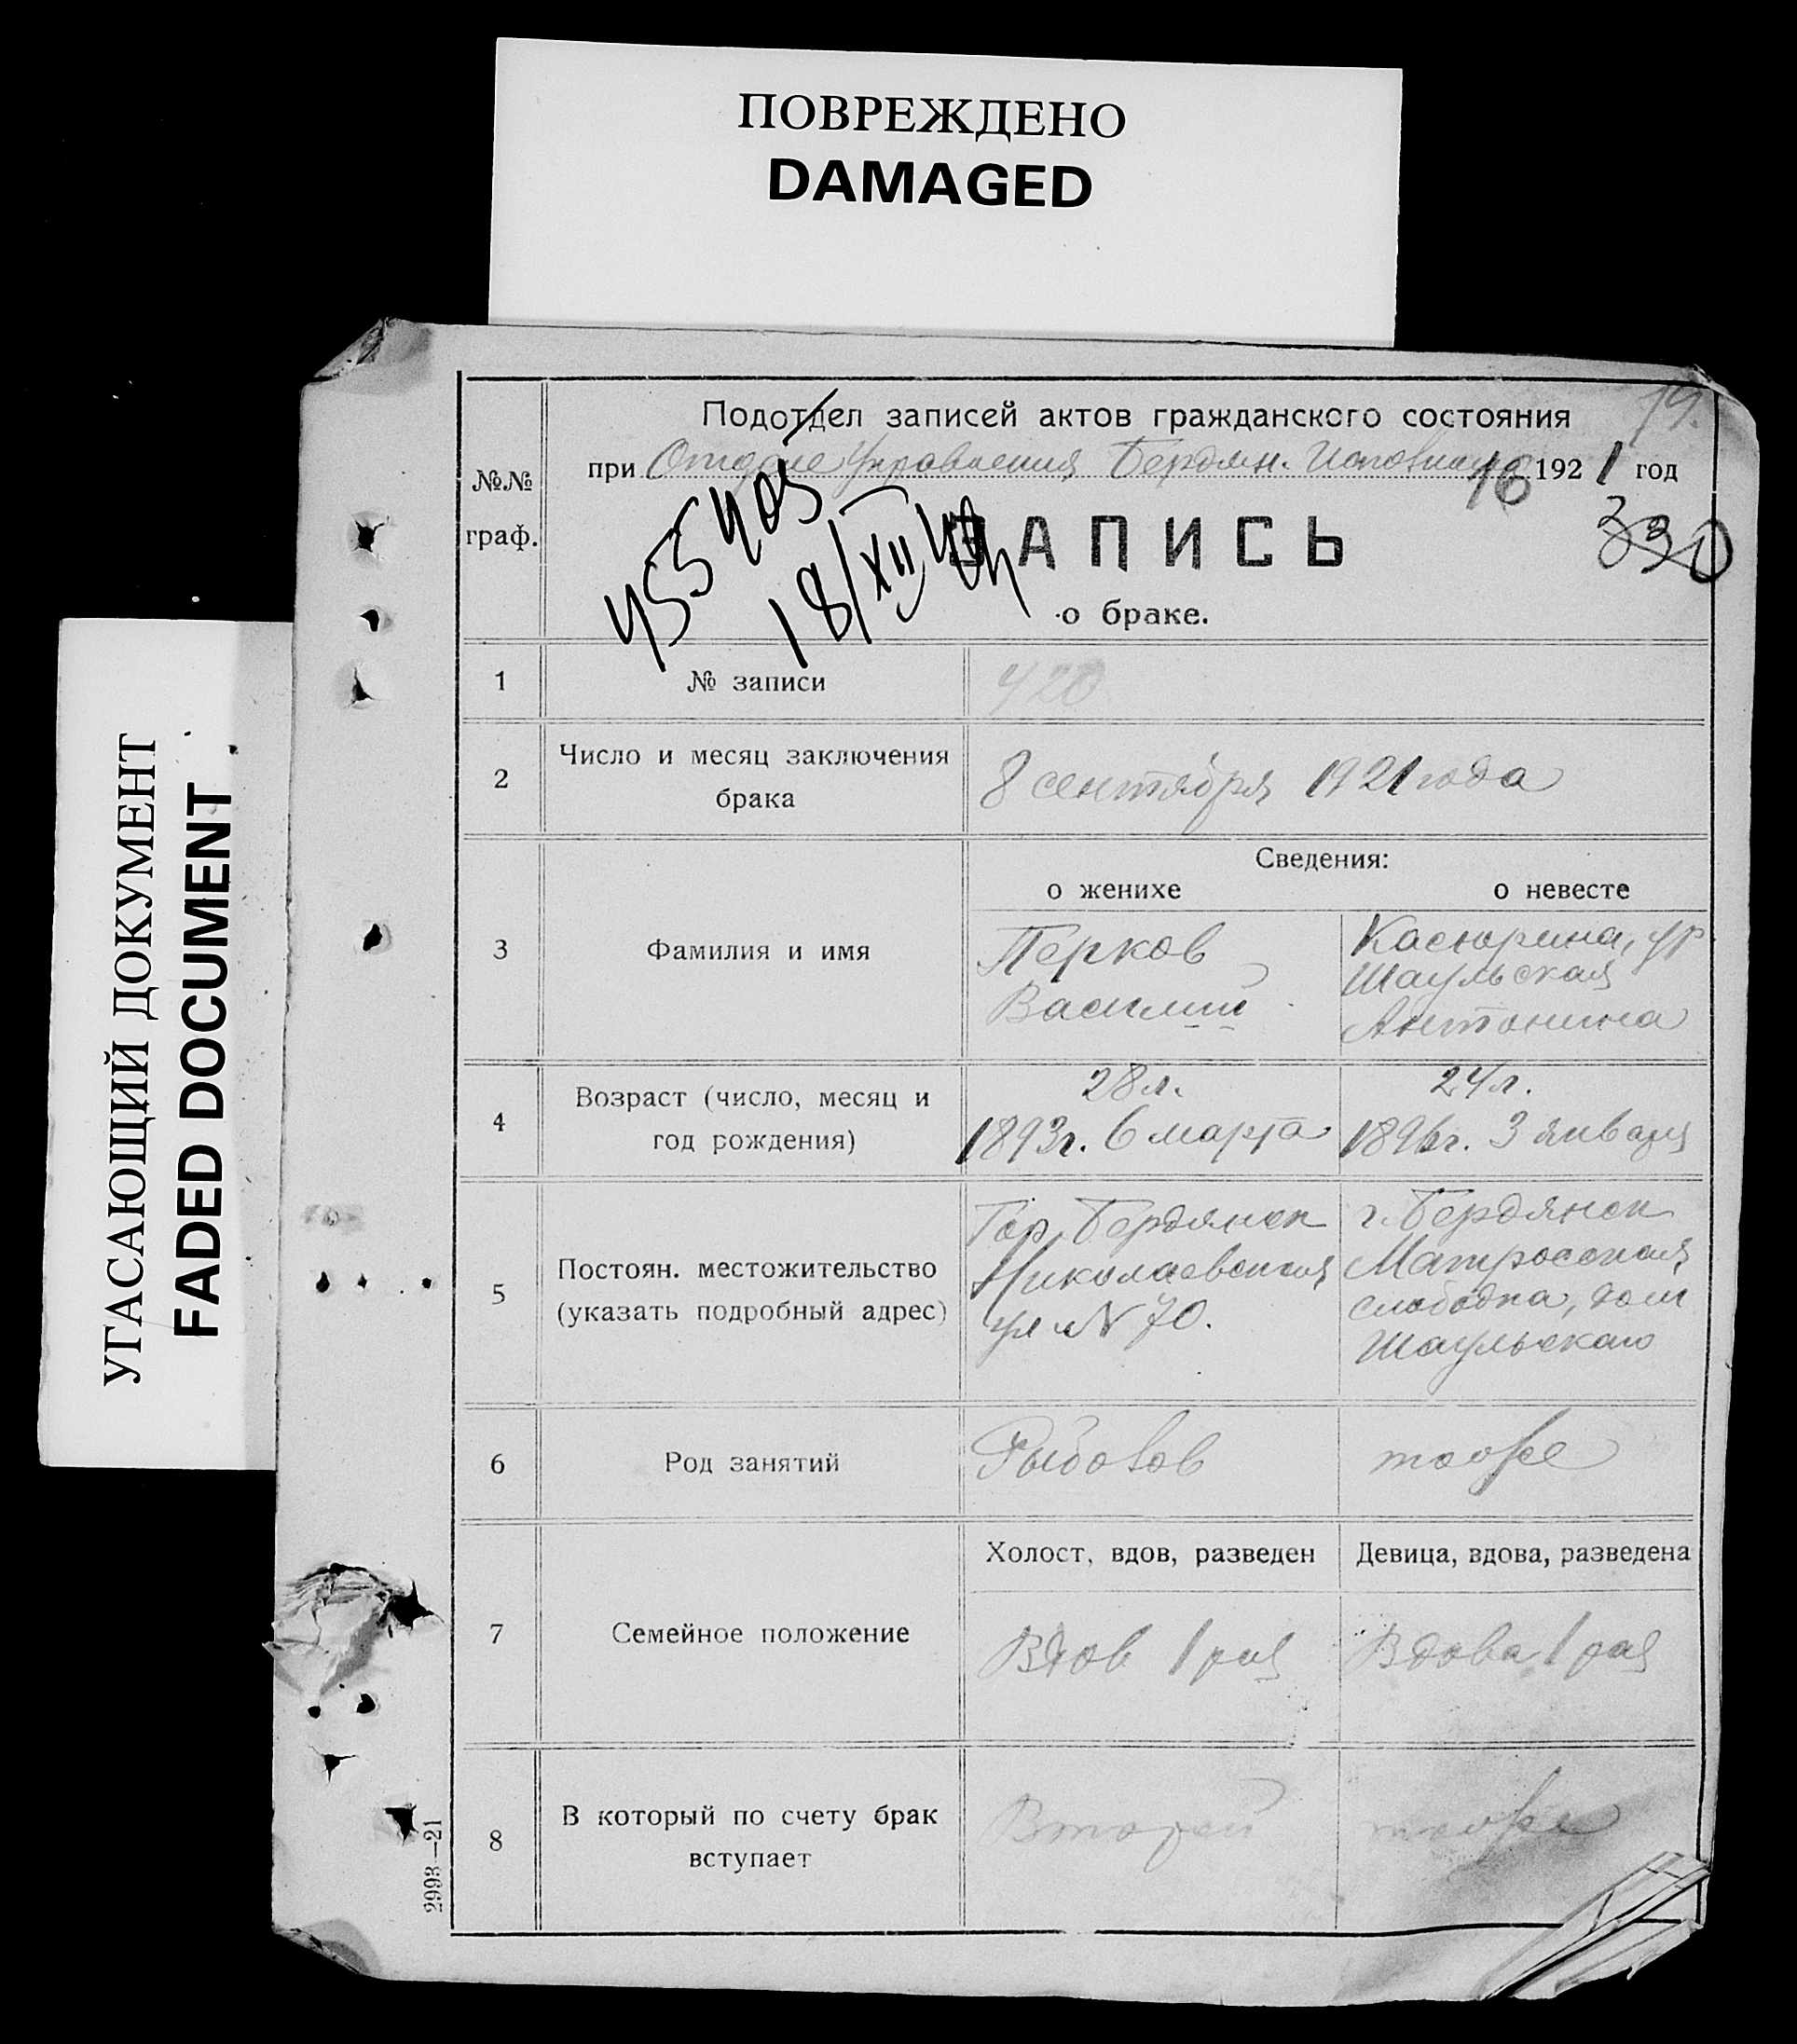 ПОВРЕЖДЕНО
DAMAGED
УГАСАЮЩИЙ ДОКУМЕНТ
FADED DOCUMENT
№№ граф.
Подотдел записей актов гражданского состояния
79.
при Отделе Управления Бердян. Исполкома 1921 год
16
330
455 405
18/XII
ЗАПИСЬ
о браке.
1 № записи 420
2 Число и месяц заключения брака 8 сентября 1921 года
Сведения:
о женихе о невесте
3 Фамилия и имя
Перков Касюрина, ур
Василий Шаульская
Антонина
4 Возраст (число, месяц и год рождения)
28 л. 24 л.
1893г. 6 марта 1896г. 3 января
5 Постоян. местожительство (указать подробный адрес)
Гор. Бердянск г. Бердянск
Николаевская Матросская
ул N 70. слободка, дом
Шаульскаго
6 Род занятий Рыболов тоже
Холост, вдов, разведен Девица, вдова, разведена
7 Семейное положение Вдов 1 раз Вдова 1 раз
8 В который по счету брак вступает Второй тоже
2993—21